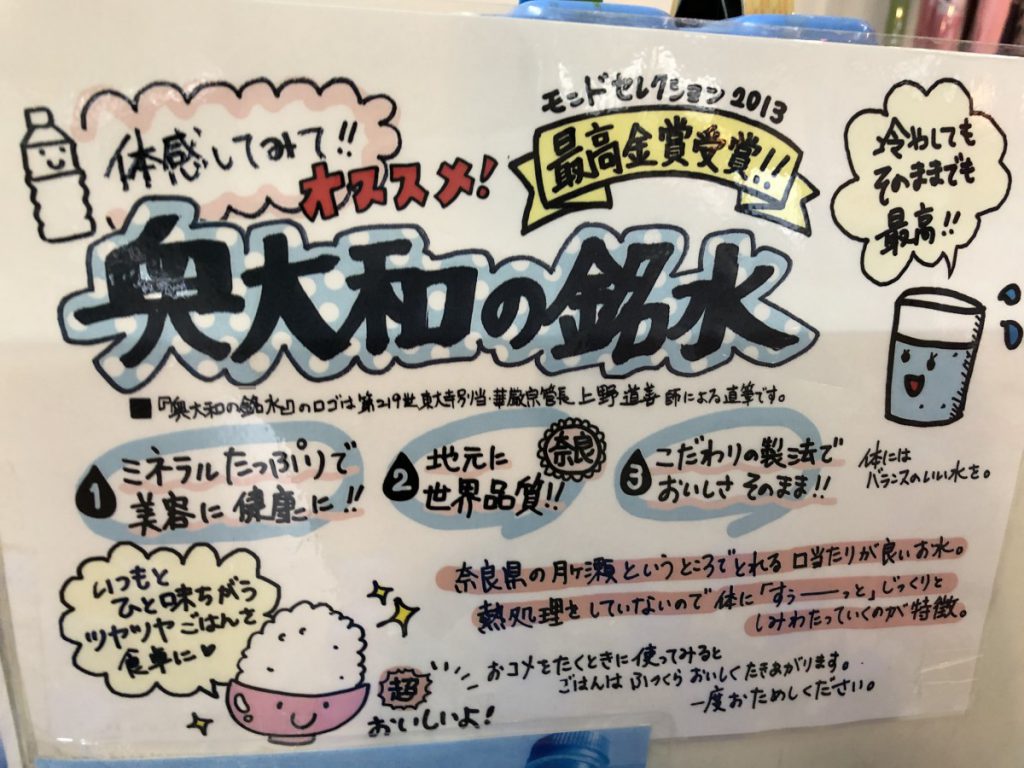 体感してみて!!
オススメ!
モンドセレクション2013
最高金賞受賞!!
冷やしても
そのままでも
最高!!
奥大和の銘水
■『奥大和の銘水』のロゴは第219世東大寺別当・華厳宗管長 上野道善師による直筆です。
1 ミネラルたっぷりで
美容に健康に!!
2 地元に
世界品質!!
奈良
3 こだわりの製法で
おいしさそのまま!!
体には
バランスのいい水を。
奈良県の月ヶ瀬というところでとれる口当たりが良いお水。
熱処理をしていないので体に「すぅーーっと」じっくりと
しみわたっていくのが特徴。
いつもと
ひと味ちがう
ツヤツヤごはんを
食卓に♥
超
おいしいよ!
おコメをたくときに使ってみると
ごはんはふっくらおいしくたきあがります。
一度おためしください。